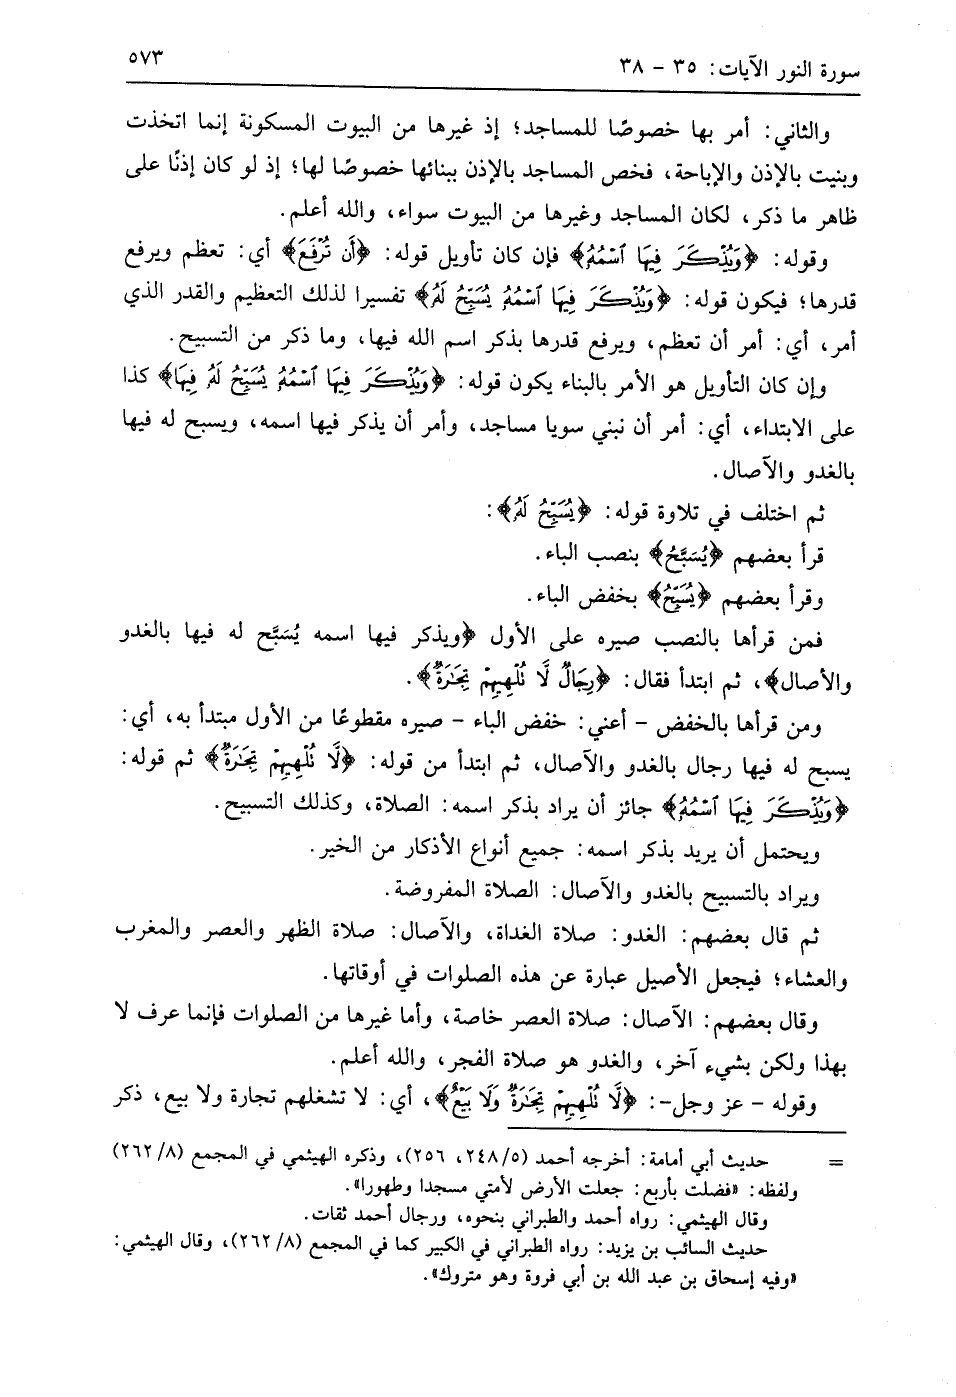 سورة النور الآيات: ٣٥ - ٣٨
٥٧٣
والثاني: أمر بها خصوصًا للمساجد؛ إذ غيرها من البيوت المسكونة إنما اتخذت
وبنيت بالإذن والإباحة، فخص المساجد بالإذن ببنائها خصوصًا لها؛ إذ لو كان إذنًا على
ظاهر ما ذكر، لكان المساجد وغيرها من البيوت سواء، والله أعلم.
وقوله: ﴿وَيُذْكَرَ فِيهَا ٱسْمُهُ﴾ فإن كان تأويل قوله: ﴿أَن تُرْفَعَ﴾ أي: تعظم ويرفع
قدرها؛ فيكون قوله: ﴿وَيُذْكَرَ فِيهَا ٱسْمُهُ يُسَبِّحُ لَهُ﴾ تفسيرا لذلك التعظيم والقدر الذي
أمر، أي: أمر أن تعظم، ويرفع قدرها بذكر اسم الله فيها، وما ذكر من التسبيح.
وإن كان التأويل هو الأمر بالبناء يكون قوله: ﴿وَيُذْكَرَ فِيهَا ٱسْمُهُ يُسَبِّحُ لَهُ فِيهَا﴾ كذا
على الابتداء، أي: أمر أن نبني سويا مساجد، وأمر أن يذكر فيها اسمه، ويسبح له فيها
بالغدو والآصال.
ثم اختلف في تلاوة قوله: ﴿يُسَبِّحُ لَهُ﴾:
قرأ بعضهم ﴿يُسَبَّحُ﴾ بنصب الباء.
وقرأ بعضهم ﴿يُسَبِّحُ﴾ بخفض الباء.
فمن قرأها بالنصب صيره على الأول ﴿ويذكر فيها اسمه يُسَبَّح له فيها بالغدو
والأصال﴾، ثم ابتدأ فقال: ﴿رِجَالٌ لَّا تُلْهِيهِمْ تِجَٰرَةٌ﴾.
ومن قرأها بالخفض - أعني: خفض الباء - صيره مقطوعًا من الأول مبتدأ به، أي:
يسبح له فيها رجال بالغدو والآصال، ثم ابتدأ من قوله: ﴿لَّا تُلْهِيهِمْ تِجَٰرَةٌ﴾ ثم قوله:
﴿وَيُذْكَرَ فِيهَا ٱسْمُهُ﴾ جائز أن يراد بذكر اسمه: الصلاة، وكذلك التسبيح.
ويحتمل أن يريد بذكر اسمه: جميع أنواع الأذكار من الخير.
ويراد بالتسبيح بالغدو والآصال: الصلاة المفروضة.
ثم قال بعضهم: الغدو: صلاة الغداة، والآصال: صلاة الظهر والعصر والمغرب
والعشاء؛ فيجعل الأصيل عبارة عن هذه الصلوات في أوقاتها.
وقال بعضهم: الآصال: صلاة العصر خاصة، وأما غيرها من الصلوات فإنما عرف لا
بهذا ولكن بشيء آخر، والغدو هو صلاة الفجر، والله أعلم.
وقوله - عز وجل-: ﴿لَّا تُلْهِيهِمْ تِجَٰرَةٌ وَلَا بَيْعٌ﴾، أي: لا تشغلهم تجارة ولا بيع، ذكر
= حديث أبي أمامة: أخرجه أحمد (٥/٢٤٨، ٢٥٦)، وذكره الهيثمي في المجمع (٨/٢٦٢)
ولفظه: «فضلت بأربع: جعلت الأرض لأمتي مسجدا وطهورا».
وقال الهيثمي: رواه أحمد والطبراني بنحوه، ورجال أحمد ثقات.
حديث السائب بن يزيد: رواه الطبراني في الكبير كما في المجمع (٨/٢٦٢)، وقال الهيثمي:
«وفيه إسحاق بن عبد الله بن أبي فروة وهو متروك».